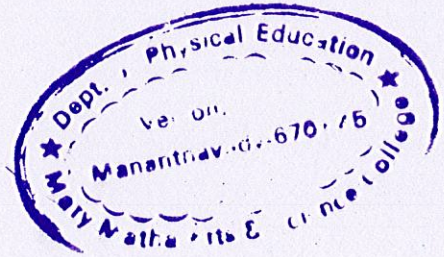 ★ Dept. , Physical Education ★
Mananthav
670
Mary Matha Arts & Science College